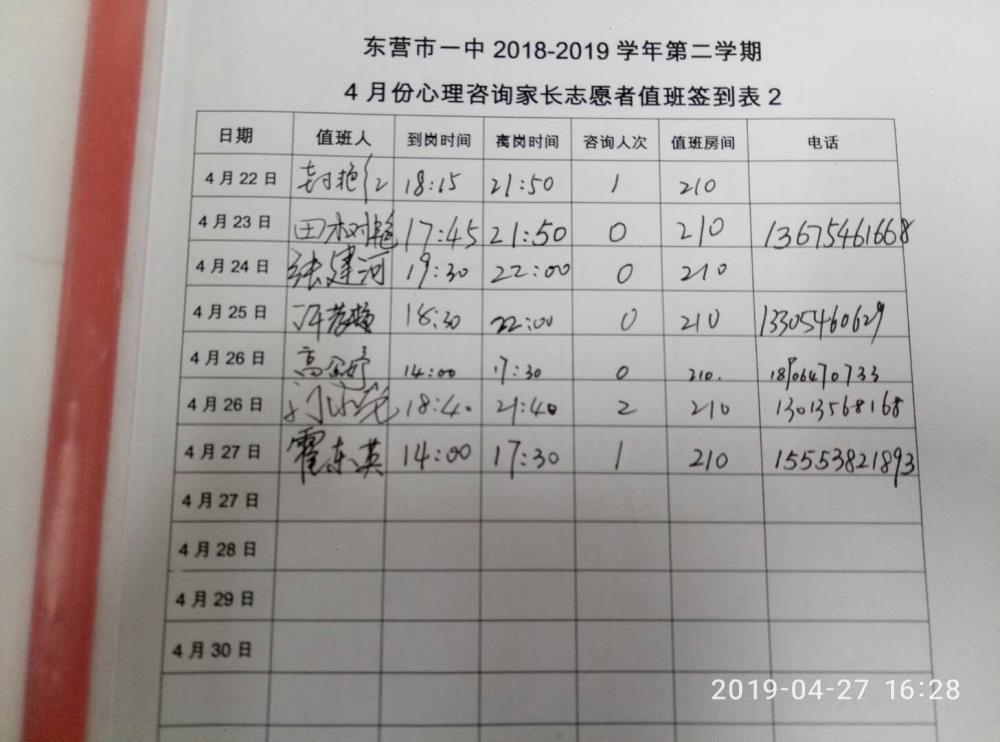 东营市一中 2018-2019 学年第二学期
4 月份心理咨询家长志愿者值班签到表 2
日期 值班人 到岗时间 离岗时间 咨询人次 值班房间 电话
4 月 22 日 封艳红 18:15 21:50 1 210
4 月 23 日 田树艳 17:45 21:50 0 210 13675461668
4 月 24 日 张建河 19:30 22:00 0 210
4 月 25 日 18:30 22:00 0 210 13305460629
4 月 26 日 14:00 17:30 0 210.
4 月 26 日 18:40 21:40 2 210
4 月 27 日 霍东英 14:00 17:30 1 210 15553821893
4 月 27 日
4 月 28 日
4 月 29 日
4 月 30 日
2019-04-27 16:28